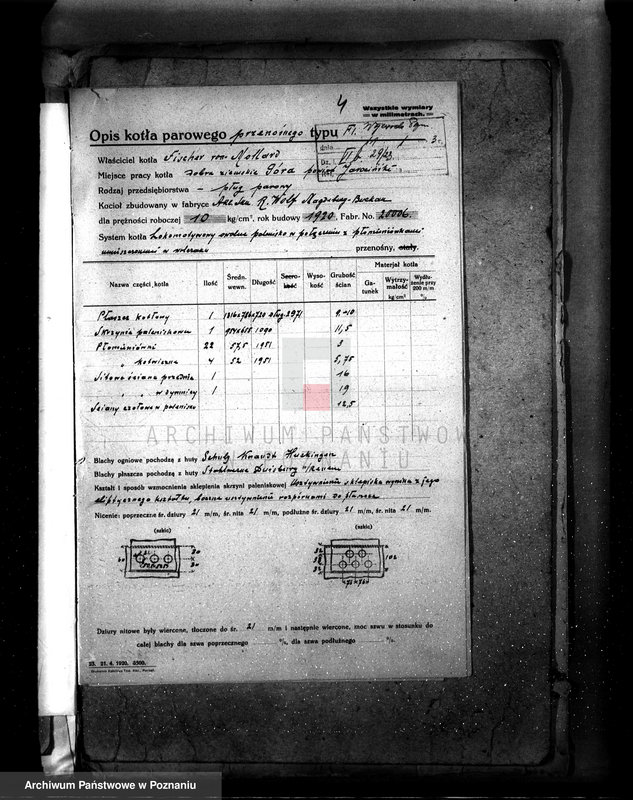 4
Wszystkie wymiary
w milimetrach.
Opis kotła parowego przenośnego typu
dnia
Właściciel kotła Fischer von Mollard
Miejsce pracy kotła dobra ziemskie Góra powiat Jarociński
Rodzaj przedsiębiorstwa - pług parowy
Kocioł zbudowany w fabryce R. Wolf Magdeburg-Buckau
dla prężności roboczej 10 kg/cm², rok budowy 1920, Fabr. No. 20006.
System kotła Lokomotywowy palenisko w połączeniu z płomieniówkami
przenośny, stały.
Nazwa części kotła Ilość Średn. wewn. Długość Szerokość Wysokość Grubość ścian Materjał kotła
Gatunek Wytrzymałość kg/cm² Wydłużenie przy 200 m/m %
Płaszcz kotłowy 1 9-10
Skrzynia paleniskowa 1 1090 11,5
Płomieniówki 22 57,5 1951 3
" kotwiczne 4 52 1951 5,75
Sitowa ściana przednia 1 16
" " w dymnicy 1 19
Ściany czołowe w palenisku 12,5
Blachy ogniowe pochodzą z huty Schulz Knaudt Huckingen
Blachy płaszcza pochodzą z huty Stahlwerk Duisburg
Kształt i sposób wzmocnienia sklepienia skrzyni paleniskowej Usztywnienie sklepiska wynika z jego
eliptycznego kształtu, boczne usztywnienie rozpórkami do płaszcza
Nicenie: poprzeczne śr. dziury 21 m/m, śr. nita 21 m/m, podłużne śr. dziury 21 m/m, śr. nita 21 m/m.
(szkic) (szkic)
Dziury nitowe były wiercone, tłoczone do śr. 21 m/m i następnie wiercone, moc szwu w stosunku do
całej blachy dla szwa poprzecznego %, dla szwa podłużnego %.
23. 21. 4. 1920. 5500.
ARCHIWUM PAŃSTWOWE
W POZNANIU
Archiwum Państwowe w Poznaniu